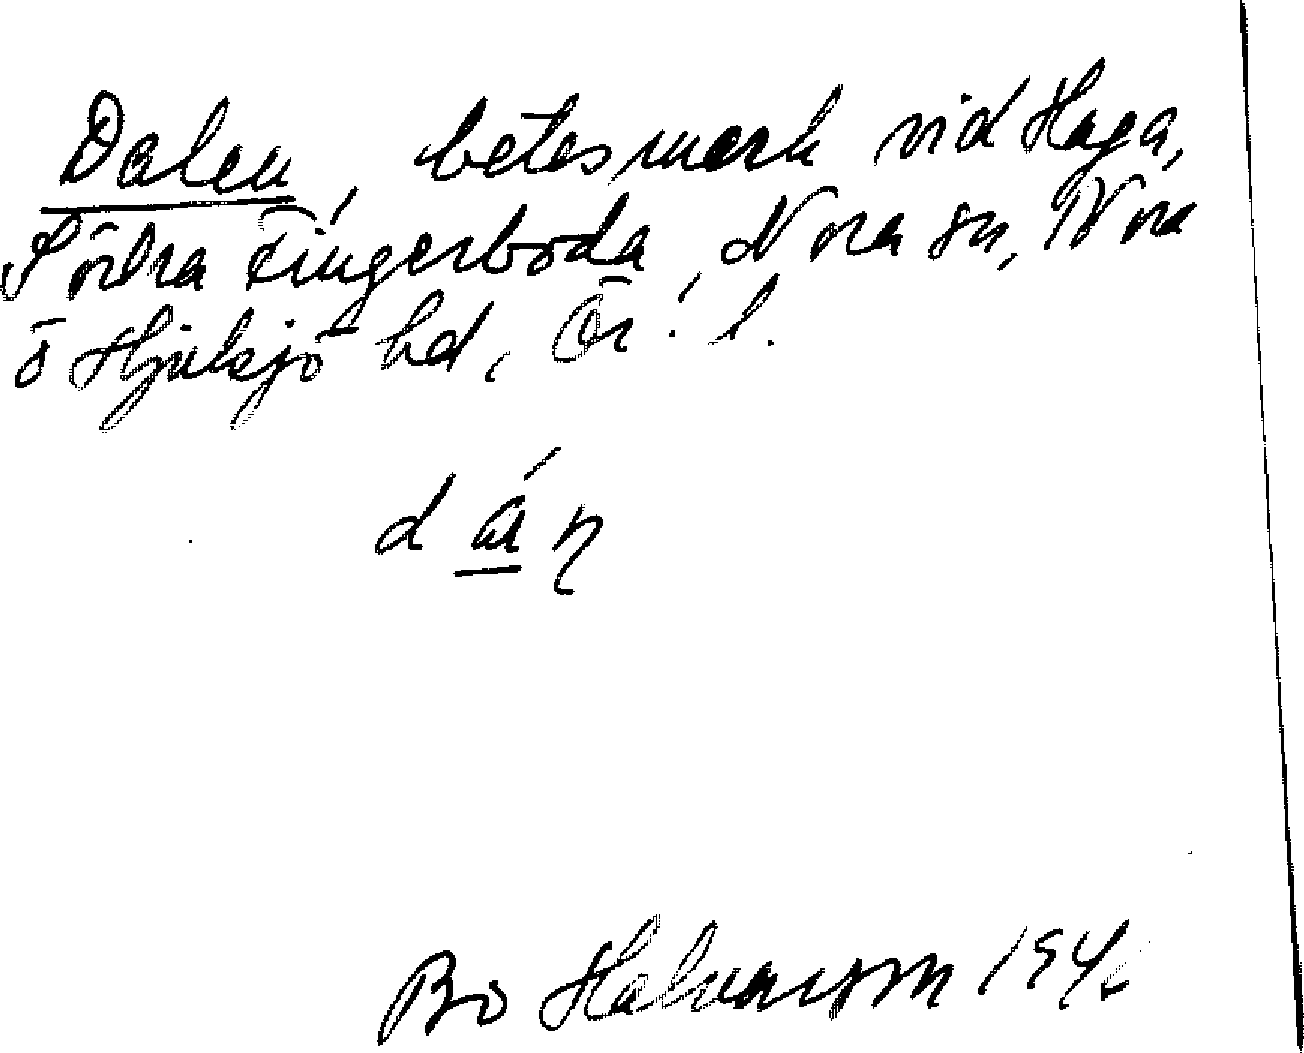 Dalen, betesmark vid Haga,
Södra Fingerboda, Nora sn, Nora
o Hjulsjö hd, Ör. l.
dán
Bo Halvarsson